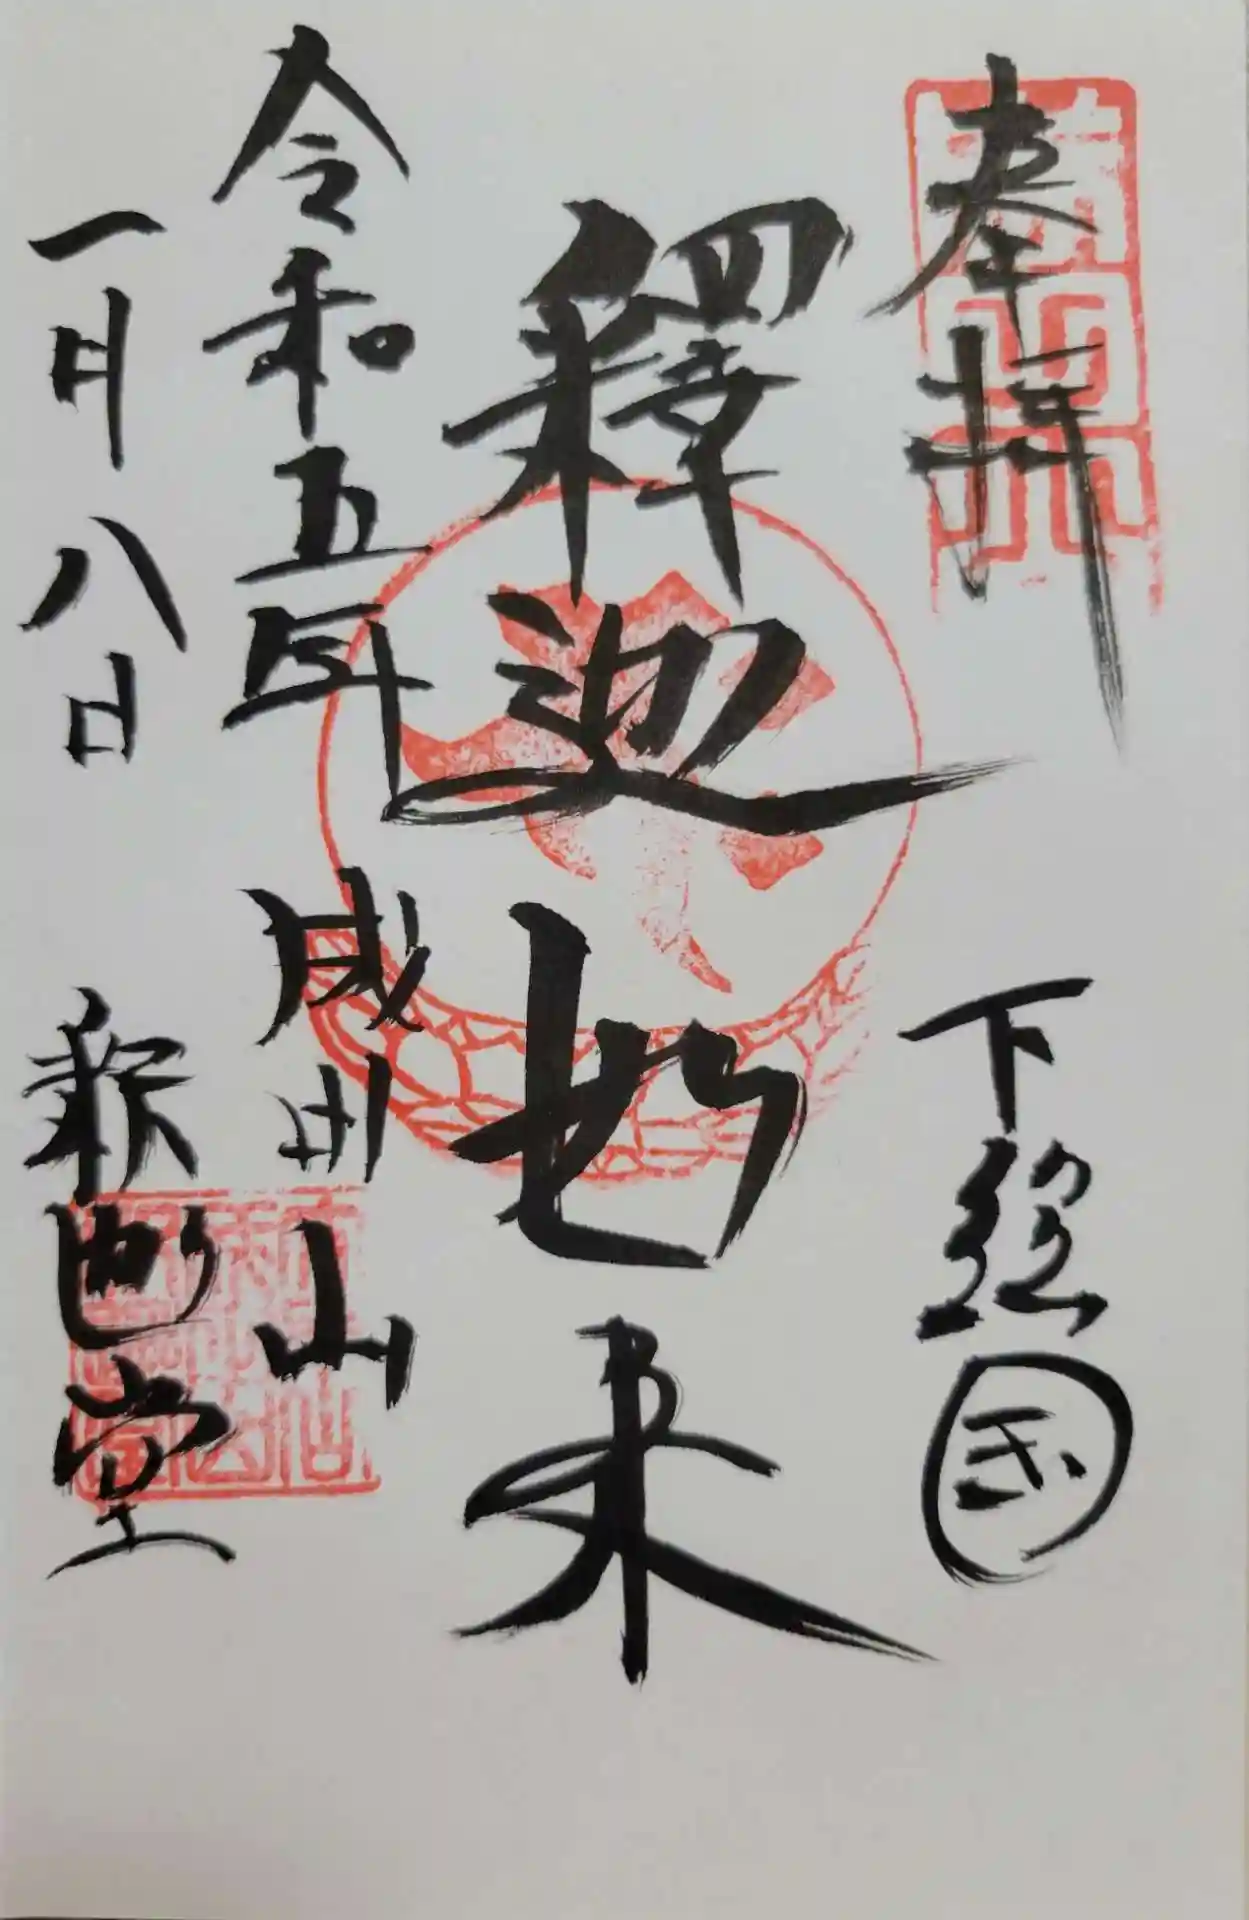 奉拝
下総国
釋迦如来
令和五年
成田山
一月八日
釈迦堂